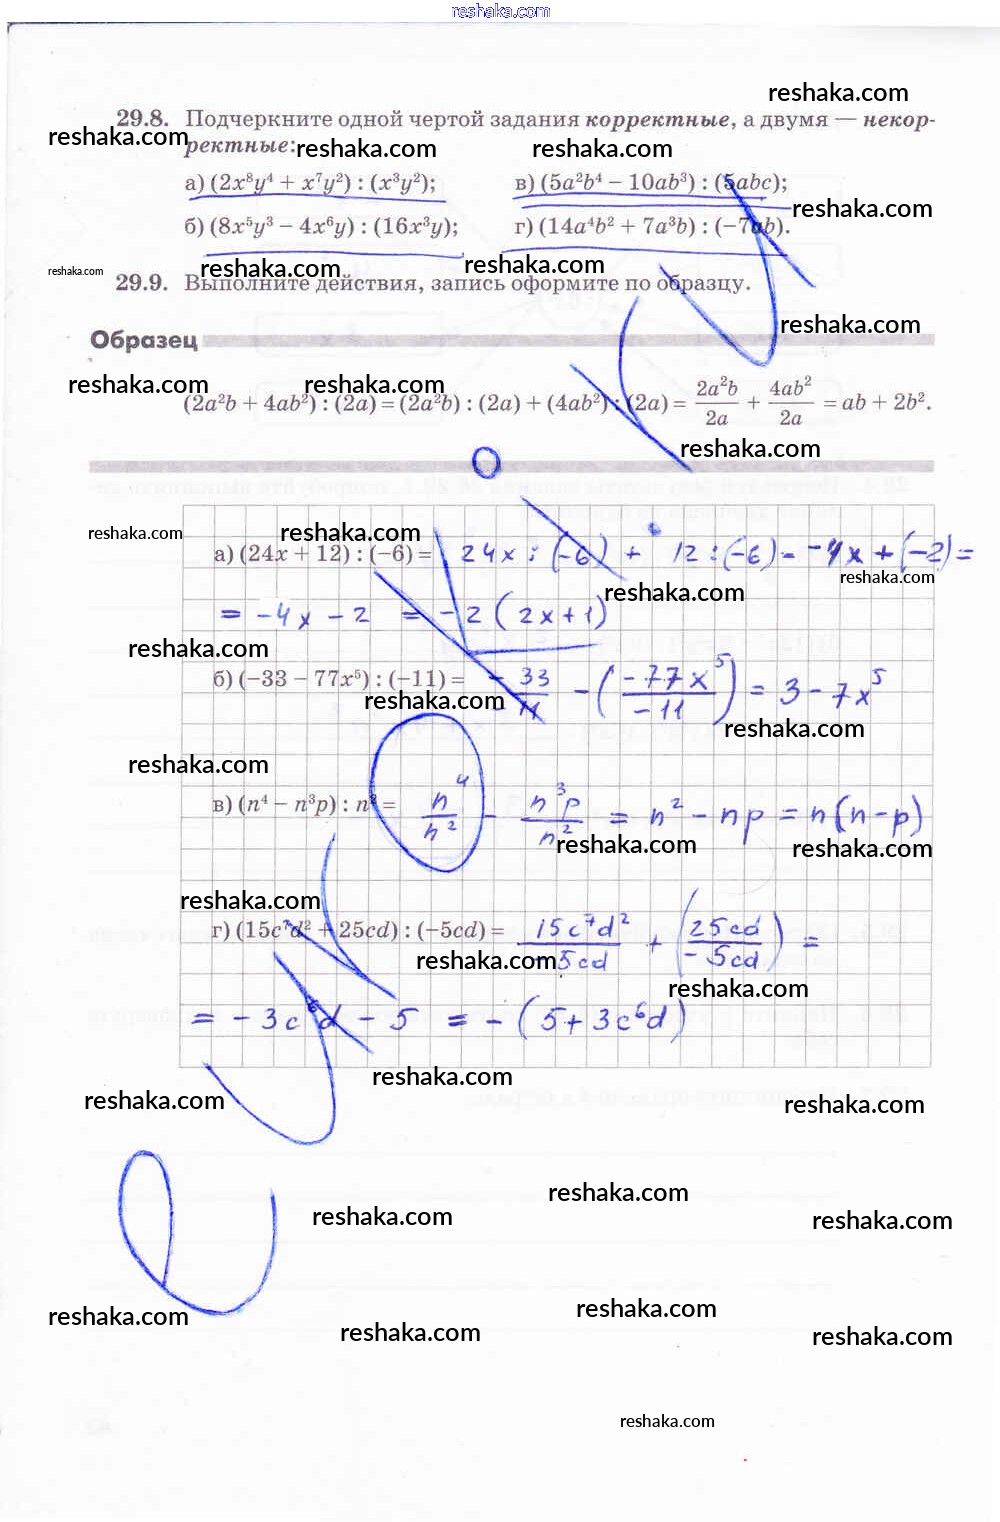 reshaka.com
reshaka.com
29.8. Подчеркните одной чертой задания корректные, а двумя — некор-
reshaka.com
ректные:
reshaka.com
reshaka.com
а) (2x⁸y⁴ + x⁷y²) : (x³y²);
в) (5a²b⁴ − 10ab³) : (5abc);
reshaka.com
б) (8x⁵y³ − 4x⁶y) : (16x³y);
г) (14a⁴b² + 7a³b) : (−7ab).
reshaka.com
reshaka.com
reshaka.com
29.9. Выполните действия, запись оформите по образцу.
reshaka.com
Образец
reshaka.com
reshaka.com
(2a²b + 4ab²) : (2a) = (2a²b) : (2a) + (4ab²) : (2a) = 2a²b/2a + 4ab²/2a = ab + 2b².
reshaka.com
reshaka.com
reshaka.com
а) (24x + 12) : (−6) = 24x : (−6) + 12 : (−6) = −4x + (−2) =
reshaka.com
reshaka.com
= −4x − 2 = −2 (2x+1)
reshaka.com
б) (−33 − 77x⁵) : (−11) = −33/−11 − (−77x⁵/−11) = 3 − 7x⁵
reshaka.com
reshaka.com
reshaka.com
в) (n⁴ − n³p) : n² = n⁴/n² − n³p/n² = n² − np = n(n−p)
reshaka.com
reshaka.com
reshaka.com
г) (15c⁷d² + 25cd) : (−5cd) = 15c⁷d²/−5cd + (25cd/−5cd) =
reshaka.com
reshaka.com
= −3c⁶d − 5 = −(5+3c⁶d)
reshaka.com
reshaka.com
reshaka.com
reshaka.com
reshaka.com
reshaka.com
reshaka.com
reshaka.com
reshaka.com
reshaka.com
reshaka.com
еуроки